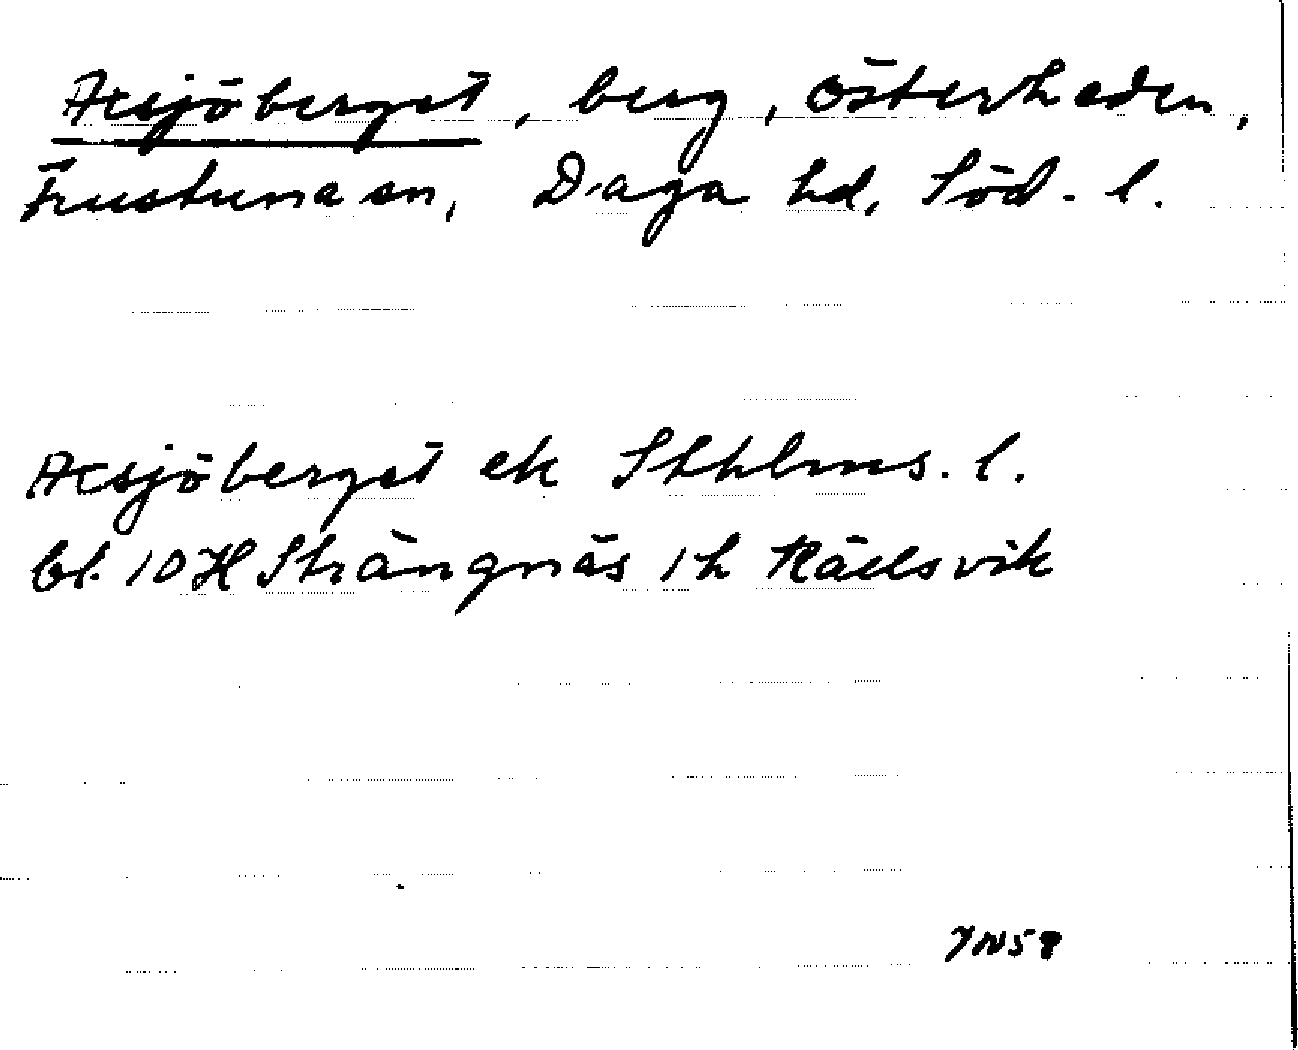 Acsjöberget, berg, Österheden,
Frustuna sn, Daga hd, Söd. l.
Acsjöberget ek Sthlms. l.
bl. 10H Strängnäs 1h Räcksvik